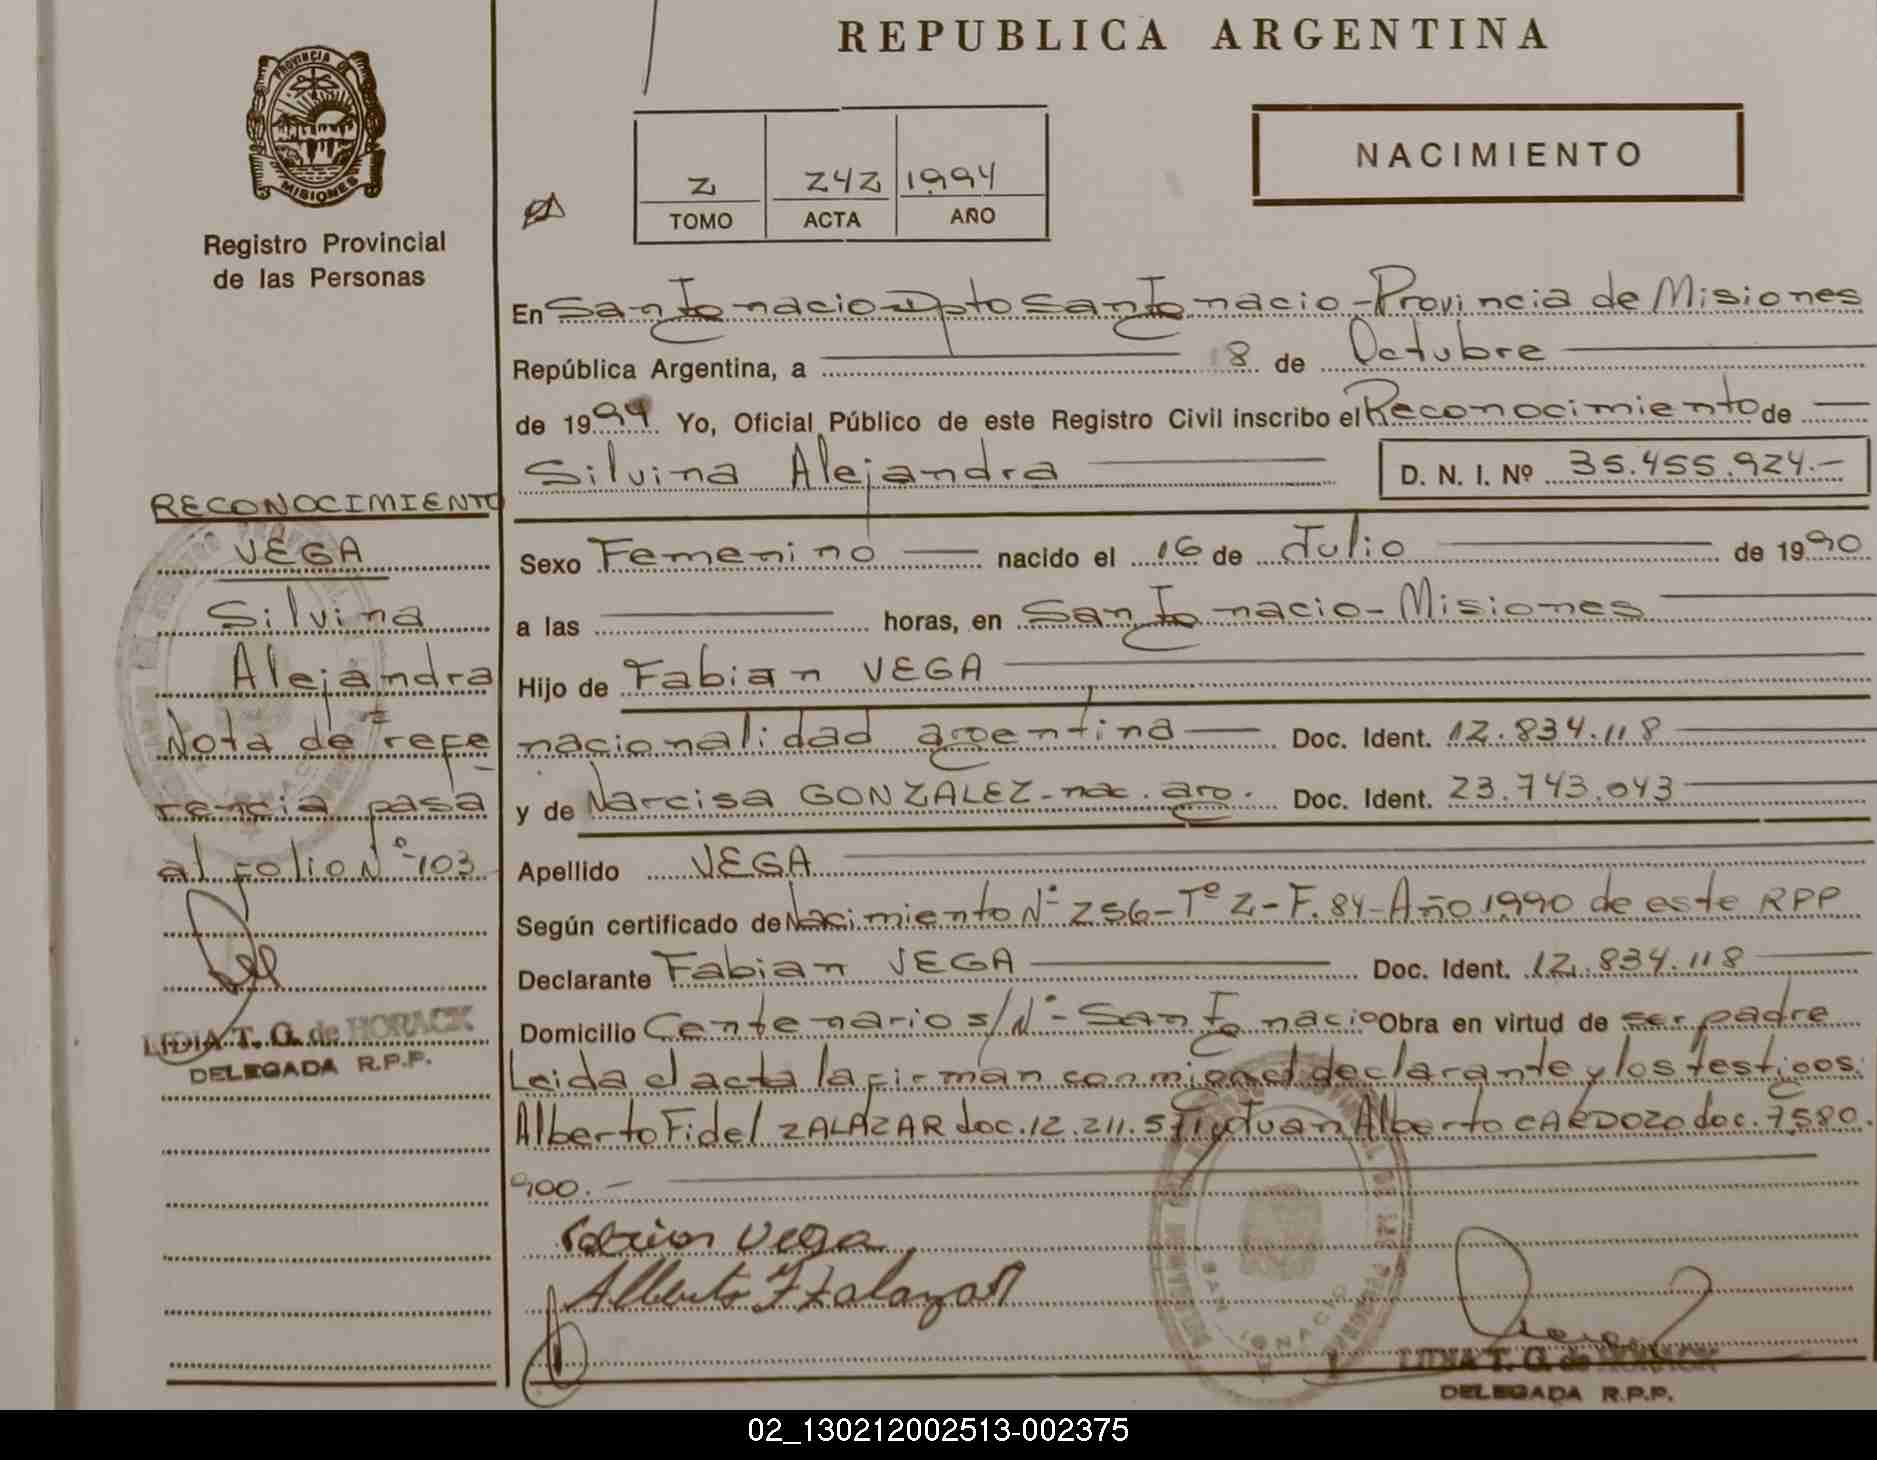 REPUBLICA ARGENTINA
PROVINCIA DE
MISIONES
Registro Provincial
de las Personas
2 242 1994
TOMO ACTA AÑO
NACIMIENTO
En San Ignacio Dpto San Ignacio - Provincia de Misiones
República Argentina, a 8 de Octubre
de 1994 Yo, Oficial Público de este Registro Civil inscribo el Reconocimiento de
Silvina Alejandra D. N. I. Nº 35.455.924.-
Sexo Femenino nacido el 16 de Julio de 1990
a las horas, en San Ignacio - Misiones
Hijo de Fabian VEGA
nacionalidad argentina Doc. Ident. 12.834.118
y de Narcisa GONZALEZ - nac. arg. Doc. Ident. 23.743.043
Apellido VEGA
Según certificado de Nacimiento Nº 256 - Tº 2 - F. 84 - Año 1990 de este RPP
Declarante Fabian VEGA Doc. Ident. 12.834.118
Domicilio Centenario s/Nº - San Ignacio Obra en virtud de ser padre
Leida el acta la firman conmigo el declarante y los testigos:
Alberto Fidel ZALAZAR doc. 12.211.571 y Juan Alberto CARDOZO doc. 7.580.
900.-
Fabian Vega
Alberto F Zalazar
LIDIA T. G. de HORACK
DELEGADA R.P.P.
RECONOCIMIENTO
VEGA
Silvina
Alejandra
Nota de refe
rencia pasa
al folio Nº 103
LIDIA T. G. de HORACK
DELEGADA R.P.P.
SAN IGNACIO
02_130212002513-002375